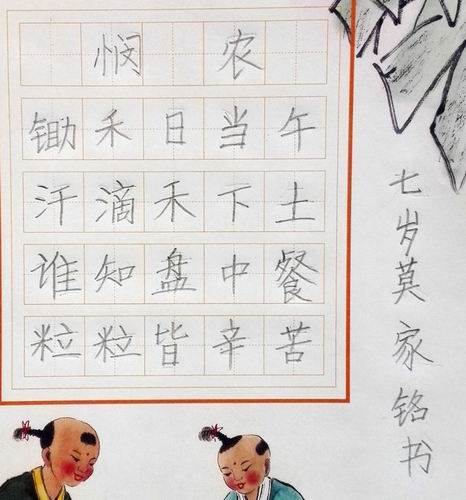 悯农
锄禾日当午
汗滴禾下土
谁知盘中餐
粒粒皆辛苦
七岁莫家铭书